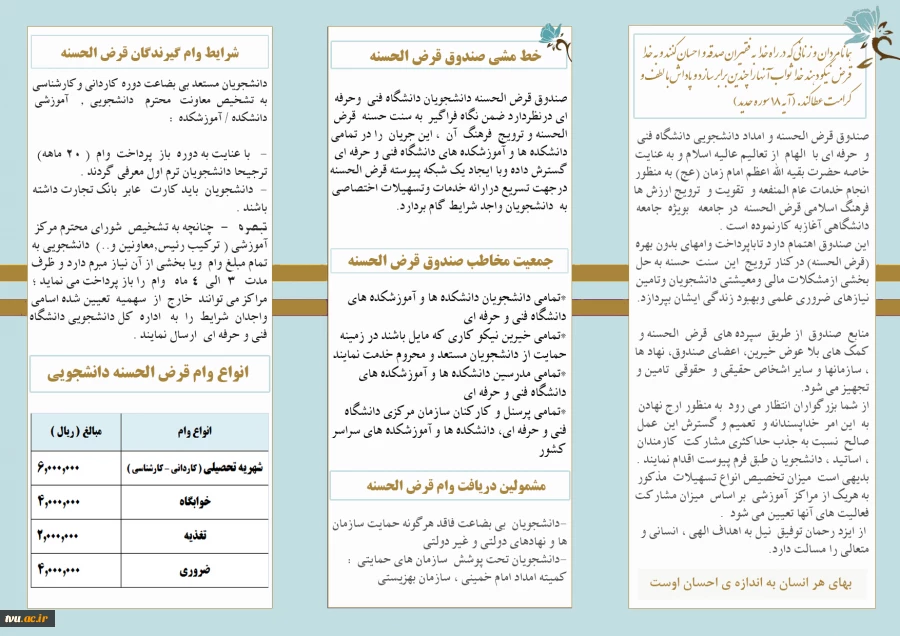 همانا مردان و زنانی که در راه خدا به فقیران صدقه و احسان کنند و به خدا
قرض نیکو دهند خدا ثواب آنها را چندین برابر سازد و پاداش با لطف و
کرامت عطا کند. (آیه ۱۸ سوره حدید)
صندوق قرض الحسنه و امداد دانشجویی دانشگاه فنی
و حرفه ای با الهام از تعالیم عالیه اسلام و به عنایت
خاصه حضرت بقیه الله اعظم امام زمان (عج) به منظور
انجام خدمات عام المنفعه و تقویت و ترویج ارزش ها
فرهنگ اسلامی قرض الحسنه در جامعه بویژه جامعه
دانشگاهی آغازبه کارنموده است .
این صندوق اهتمام دارد تاباپرداخت وامهای بدون بهره
(قرض الحسنه) درکنار ترویج این سنت حسنه به حل
بخشی ازمشکلات مالی ومعیشتی دانشجویان وتامین
نیازهای ضروری علمی وبهبود زندگی ایشان بپردازد.
منابع صندوق از طریق سپرده های قرض الحسنه و
کمک های بلا عوض خیرین، اعضای صندوق، نهاد ها
، سازمانها و سایر اشخاص حقیقی و حقوقی تامین و
تجهیز می شود.
از شما بزرگواران انتظار می رود به منظور ارج نهادن
به این امر خداپسندانه و تعمیم و گسترش این عمل
صالح نسبت به جذب حداکثری مشارکت کارمندان
، اساتید ، دانشجویا ن طبق فرم پیوست اقدام نمایند .
بدیهی است میزان تخصیص انواع تسهیلات مذکور
به هریک از مراکز آموزشی بر اساس میزان مشارکت
فعالیت های آنها تعیین می شود .
از ایزد رحمان توفیق نیل به اهداف الهی ، انسانی و
متعالی را مسالت دارد.
بهای هر انسان به اندازه ی احسان اوست
خط مشی صندوق قرض الحسنه
صندوق قرض الحسنه دانشجویان دانشگاه فنی وحرفه
ای درنظردارد ضمن نگاه فراگیر به سنت حسنه قرض
الحسنه و ترویج فرهنگ آن ، این جریان را در تمامی
دانشکده ها و آموزشکده های دانشگاه فنی و حرفه ای
گسترش داده وبا ایجاد یک شبکه پیوسته قرض الحسنه
درجهت تسریع درارائه خدمات وتسهیلات اختصاصی
به دانشجویان واجد شرایط گام بردارد.
جمعیت مخاطب صندوق قرض الحسنه
*تمامی دانشجویان دانشکده ها و آموزشکده های
دانشگاه فنی و حرفه ای
*تمامی خیرین نیکو کاری که مایل باشند در زمینه
حمایت از دانشجویان مستعد و محروم خدمت نمایند
*تمامی مدرسین دانشکده ها و آموزشکده های
دانشگاه فنی و حرفه ای
*تمامی پرسنل و کارکنان سازمان مرکزی دانشگاه
فنی و حرفه ای، دانشکده ها و آموزشکده های سراسر
کشور
مشمولین دریافت وام قرض الحسنه
–دانشجویان بی بضاعت فاقد هرگونه حمایت سازمان
ها و نهادهای دولتی و غیر دولتی
–دانشجویان تحت پوشش سازمان های حمایتی :
کمیته امداد امام خمینی ، سازمان بهزیستی
شرایط وام گیرندگان قرض الحسنه
دانشجویان مستعد بی بضاعت دوره کاردانی و کارشناسی
به تشخیص معاونت محترم دانشجویی , آموزشی
دانشکده / آموزشکده :
– با عنایت به دوره باز پرداخت وام ( ۲۰ ماهه)
ترجیحا دانشجویان ترم اول معرفی گردند .
– دانشجویان باید کارت عابر بانک تجارت داشته
باشند .
تبصره – چنانچه به تشخیص شورای محترم مرکز
آموزشی ( ترکیب رئیس,معاونین و..) دانشجویی به
تمام مبلغ وام ویا بخشی از آن نیاز مبرم دارد و ظرف
مدت ۳ الی ٤ ماه وام را باز پرداخت می نماید ؛
مراکز می توانند خارج از سهمیه تعیین شده اسامی
واجدان شرایط را به اداره کل دانشجویی دانشگاه
فنی و حرفه ای ارسال نمایند .
انواع وام قرض الحسنه دانشجویی
انواع وام	مبالغ ( ریال )
شهریه تحصیلی ( کاردانی – کارشناسی )	۶,۰۰۰,۰۰۰
خوابگاه	۴,۰۰۰,۰۰۰
تغذیه	۲,۰۰۰,۰۰۰
ضروری	۴,۰۰۰,۰۰۰
tvu.ac.ir